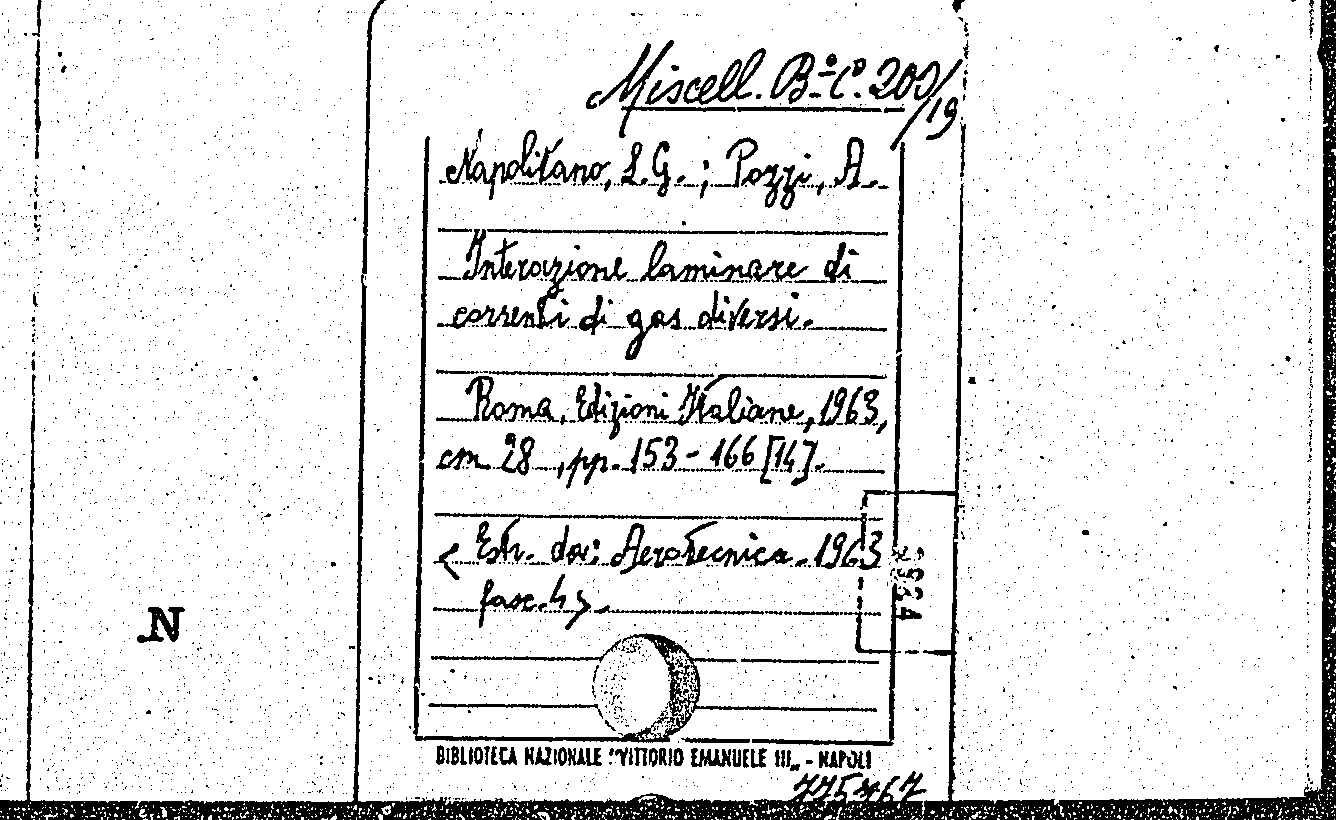 Miscell. Bª Cº. 200/19
Napolitano, L.G. ; Pozzi, A.
Interazione laminare di
correnti di gas diversi.
Roma, Edizioni Italiane, 1963,
cm 28, pp. 153-166 [14].
< Estr. da: Aerotecnica. 1963
fasc. 4 >.
N
BIBLIOTECA NAZIONALE "VITTORIO EMANUELE III„ - NAPOLI